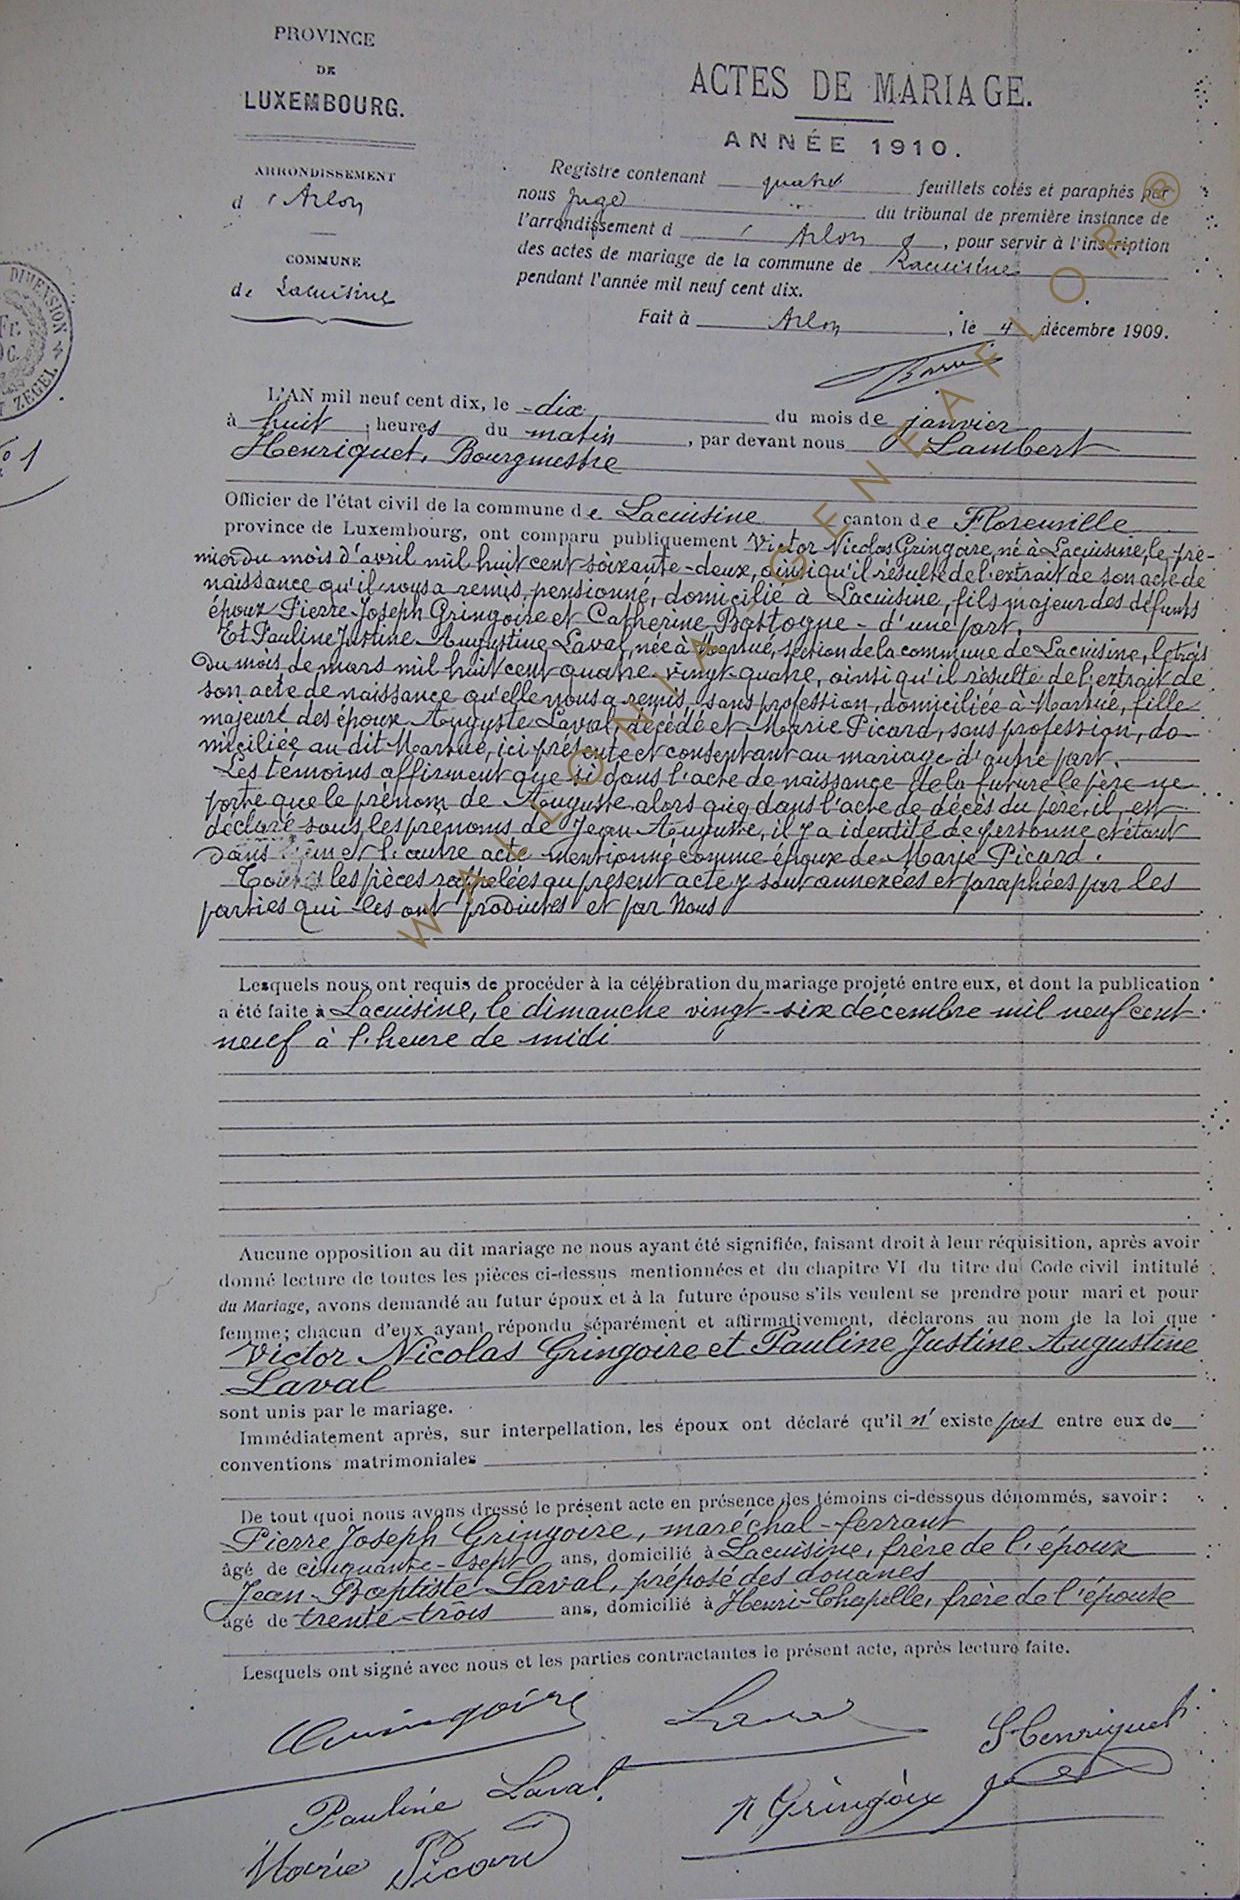 PROVINCE
DE
LUXEMBOURG.
ARRONDISSEMENT
d'Arlon
COMMUNE
de Lacuisine
DIMENSION
ZEGEL
No 1
ACTES DE MARIAGE.
ANNÉE 1910.
Registre contenant quatre feuillets cotés et paraphés par
nous juge du tribunal de première instance de
l'arrondissement d'Arlon, pour servir à l'inscription
des actes de mariage de la commune de Lacuisine
pendant l'année mil neuf cent dix.
Fait à Arlon, le 4 décembre 1909.
L'AN mil neuf cent dix, le dix du mois de janvier
à huit heures du matin, par devant nous Lambert
Henriquet, Bourgmestre
Officier de l'état civil de la commune de Lacuisine canton de Florenville
province de Luxembourg, ont comparu publiquement Victor Nicolas Gringoire, né à Lacuisine, le pre-
mier du mois d'avril mil huit cent soixante-deux, ainsi qu'il résulte de l'extrait de son acte de
naissance qu'il nous a remis, pensionné, domicilié à Lacuisine, fils majeur des défunts
époux Pierre-Joseph Gringoire et Catherine Bastogne - d'une part.
Et Pauline Justine Augustine Laval, née à Martué, section de la commune de Lacuisine, le trois
du mois de mars mil huit cent quatre vingt-quatre, ainsi qu'il résulte de l'extrait de
son acte de naissance qu'elle nous a remis, sans profession, domiciliée à Martué, fille
majeure des époux Auguste Laval, décédé et Marie Picard, sans profession, do-
miciliée au dit Martué, ici présente et consentant au mariage d'autre part.
Les témoins affirment que si dans l'acte de naissance de la future le père ne
porte que le prénom de Auguste alors que dans l'acte de décès du père, il est
déclaré sous les prénoms de Jean Auguste, il y a identité de personne et étant
dans l'un et l'autre acte mentionné comme époux de Marie Picard.
Toutes les pièces rappelées au présent acte y sont annexées et paraphées par les
parties qui les ont produites et par nous
Lesquels nous ont requis de procéder à la célébration du mariage projeté entre eux, et dont la publication
a été faite à Lacuisine, le dimanche vingt-six décembre mil neuf cent
neuf à l'heure de midi
Aucune opposition au dit mariage ne nous ayant été signifiée, faisant droit à leur réquisition, après avoir
donné lecture de toutes les pièces ci-dessus mentionnées et du chapitre VI du titre du Code civil intitulé
du Mariage, avons demandé au futur époux et à la future épouse s'ils veulent se prendre pour mari et pour
femme; chacun d'eux ayant répondu séparément et affirmativement, déclarons au nom de la loi que
Victor Nicolas Gringoire et Pauline Justine Augustine
Laval
sont unis par le mariage.
Immédiatement après, sur interpellation, les époux ont déclaré qu'il n'existe pas entre eux de
conventions matrimoniales
De tout quoi nous avons dressé le présent acte en présence des témoins ci-dessous dénommés, savoir:
Pierre Joseph Gringoire, maréchal-ferrant
âgé de cinquante-sept ans, domicilié à Lacuisine, frère de l'époux
Jean-Baptiste Laval, préposé des douanes
âgé de trente-trois ans, domicilié à Henri-Chapelle, frère de l'épouse
Lesquels ont signé avec nous et les parties contractantes le présent acte, après lecture faite.
Gringoire Laval Henriquet
Pauline Laval. Gringoire
Marie Picard
WALLONIA-GENEAFLOR®